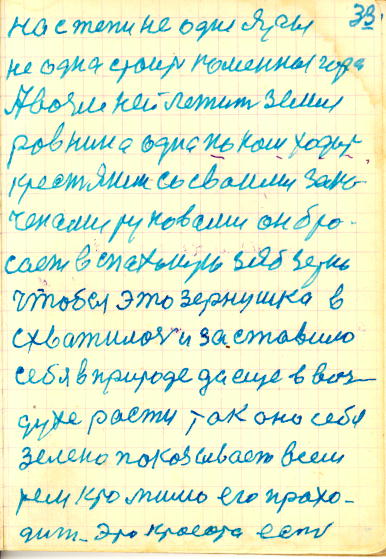 33
на степи не одне
не одна стоит каменных гора
А возле ней лежит земля
ровнина одна по ком ходит
крестянин со своими зако-
ченами руковами он бро-
сает в
чтобы это зернушка в
схватилоя и заставило
себя в природе да еще в воз-
духе расти так оно себя
зелено показывает всем
тем кто мимо его прохо-
дит. Это красота есть